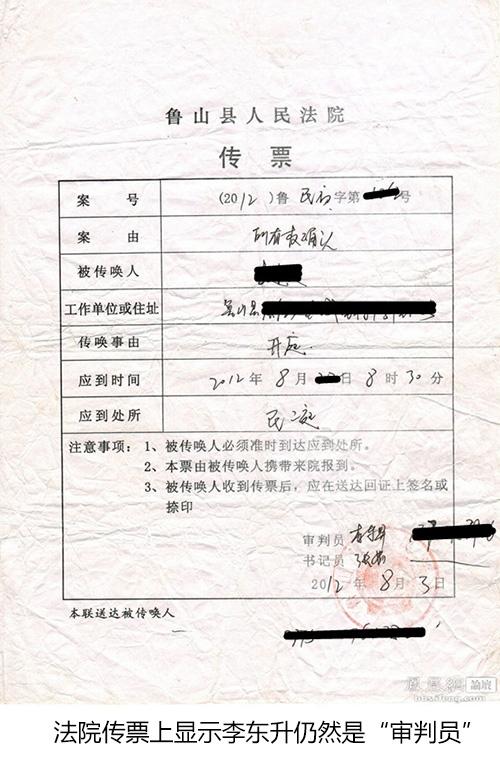 鲁山县人民法院
传票
案号 (2012)鲁民初字第 号
案由 所有权确认
被传唤人
工作单位或住址 鲁山县
传唤事由 开庭.
应到时间 2012年8月 日8时30分
应到处所 民二庭
注意事项：1、被传唤人必须准时到达应到处所。
2、本票由被传唤人携带来院报到。
3、被传唤人收到传票后，应在送达回证上签名或
捺印
审判员 李东升
书记员
2012年8月3日
本联送达被传唤人
凤凰網 論壇
bbs.ifeng.com
法院传票上显示李东升仍然是“审判员”